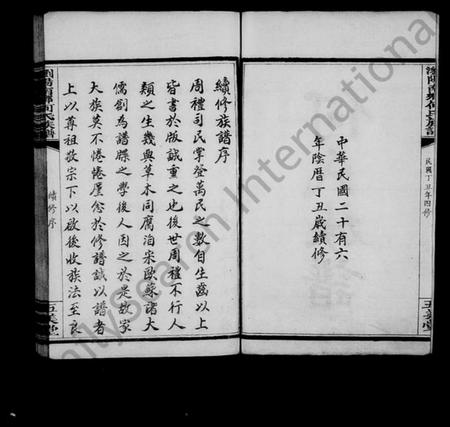 瀏陽南鄉何氏族譜
民國丁丑年四修
中華民國二十有六
年陰曆丁丑歲續修
續修族譜序
周禮司民掌登萬民之數自生齒以上
皆書於版誠重之也後世周禮不行人
類之生幾與草木同腐洎宋歐蘇諸大
儒創為譜牒之學後人因之於是故家
大族莫不惓惓厪念於修譜誠以譜者
上以尊祖敬宗下以啟後收族法至良
續修序
FamilySearch International